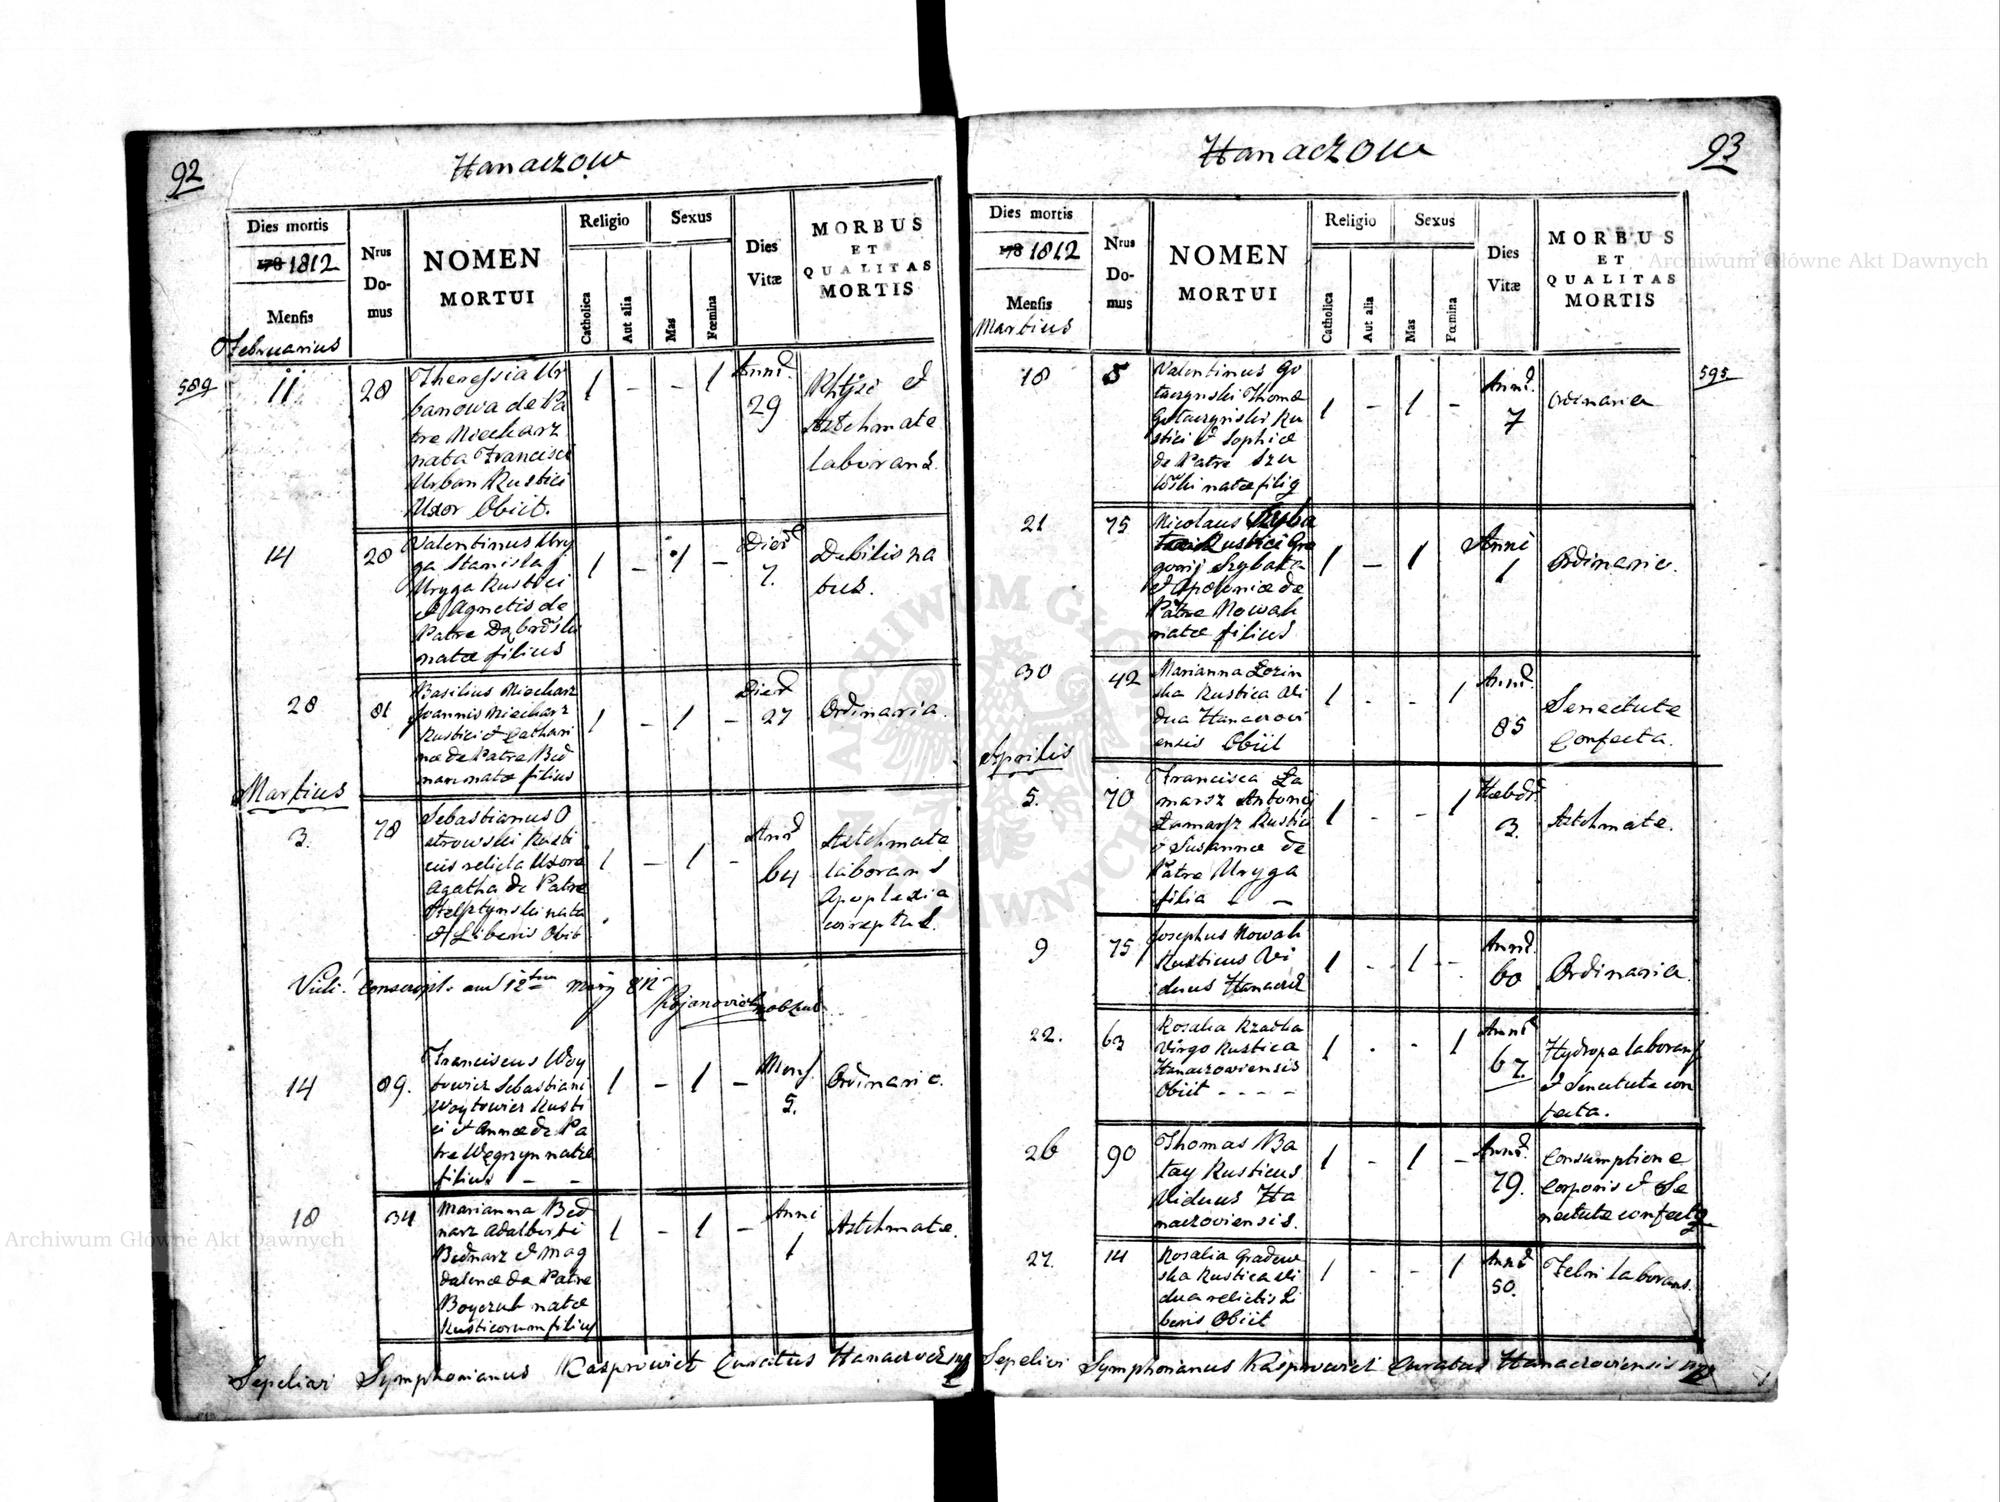 92
Hanaczow
Dies mortis
178 1812
Mensis
Februarius
Nrus
Do-
mus
NOMEN
MORTUI
Religio
Catholica
Aut alia
Sexus
Mas
Fœmina
Dies
Vitæ
MORBUS
ET
QUALITAS
MORTIS
589
11
28
Theressia Ur
banowa de Pa
tre Miecharz
nata Francisci
Urban Rustici
Uxor Obiit.
1 - - 1
Anni
29
Phtysi et
Astchmate
laborans
14
28
Valentinus Ury
ga Stanislaj
Uryga Rustici
et Agnetis de
Patre Dąbrowski
natæ filius
1 - 1 -
Dier
7.
Debilis na
tus.
28
81
Basilius Miecharz
Joannis Miecharz
Rustici et Cathari
næ de Patre Bed
narz natæ filius
1 - 1 -
Dier
27
Ordinaria.
Martius
3.
78
Sebastianus O
strowski Rusti
cus relicta Uxore
Agatha de Patre
nata
et Liberis Obiit
1 - 1 -
Anno
64
Astchmate
laborans
Apoplexia
correptus.
Vidi. Conscript. am 12ten März 812
14
89.
Franciscus Woy
towicz Sebastiani
Woytowicz Rusti
ci et Annæ de Pa
tre Węgrzyn natæ
filius - -
1 - 1 -
Mens.
5.
Ordinaria.
18
34
Marianna Bed
narz Adalberti
Bednarz et Mag
dalenæ de Patre
Boyczuk natæ
Rusticorum filius
1 - 1 -
Anni
1
Astchmate.
Sepelivi Symphorianus Kasprowicz Curatus Hanaczoviensis
93
Hanaczow
Dies mortis
178 1812
Mensis
Martius
Nrus
Do-
mus
NOMEN
MORTUI
Religio
Catholica
Aut alia
Sexus
Mas
Fœmina
Dies
Vitæ
MORBUS
ET
QUALITAS
MORTIS
595
18
5
Valentinus Go
taczynski Thomæ
Gotaczynski Ru
stici et Sophiæ
de Patre Szu
natæ filig
1 - 1 -
Anni
7
Ordinaria
21
75
Nicolaus Szyba
Rustici Gre
gorij Szybata
et Apoloniæ de
Patre Nowak
natæ filius
1 - 1
Anni
1
Ordinaria.
30
42
Marianna Lozin
ska Rustica Vi
dua Hanaczovi
ensis Obiit
1 - - 1
Anni
85
Senectute
Confecta.
Aprilis
5.
70
Francisca La
marsz Antonij
Lamarsz Rustici
et Susannæ de
Patre Uryga
filia - -
1 - - 1
Hebdo
3.
Astchmate.
9
75
Josephus Nowak
Rusticus Vi
duus Hanacz
1 - 1 -
Anno
60
Ordinaria
22.
63
Rosalia Rzadka
Virgo Rustica
Hanaczoviensis
Obiit - - - -
1 - - 1
Anni
67.
Hydrope laborans
et Senectute con
fecta.
26
90
Thomas Ba
tay Rusticus
Viduus Ha
naczoviensis.
1 - 1 -
Anni
79.
Consumptione
Corporis et Se
nectute confectg
27.
14
Rosalia Gradow
ska Rustica Vi
dua relictis Li
beris Obiit
1 - - 1
Anno
50.
Febri laborans.
Sepelivi Symphorianus Kasprowicz Curatus Hanaczoviensis
Archiwum Główne Akt Dawnych
Archiwum Główne Akt Dawnych
ARCHIWUM GŁÓWNE AKT DAWNYCH